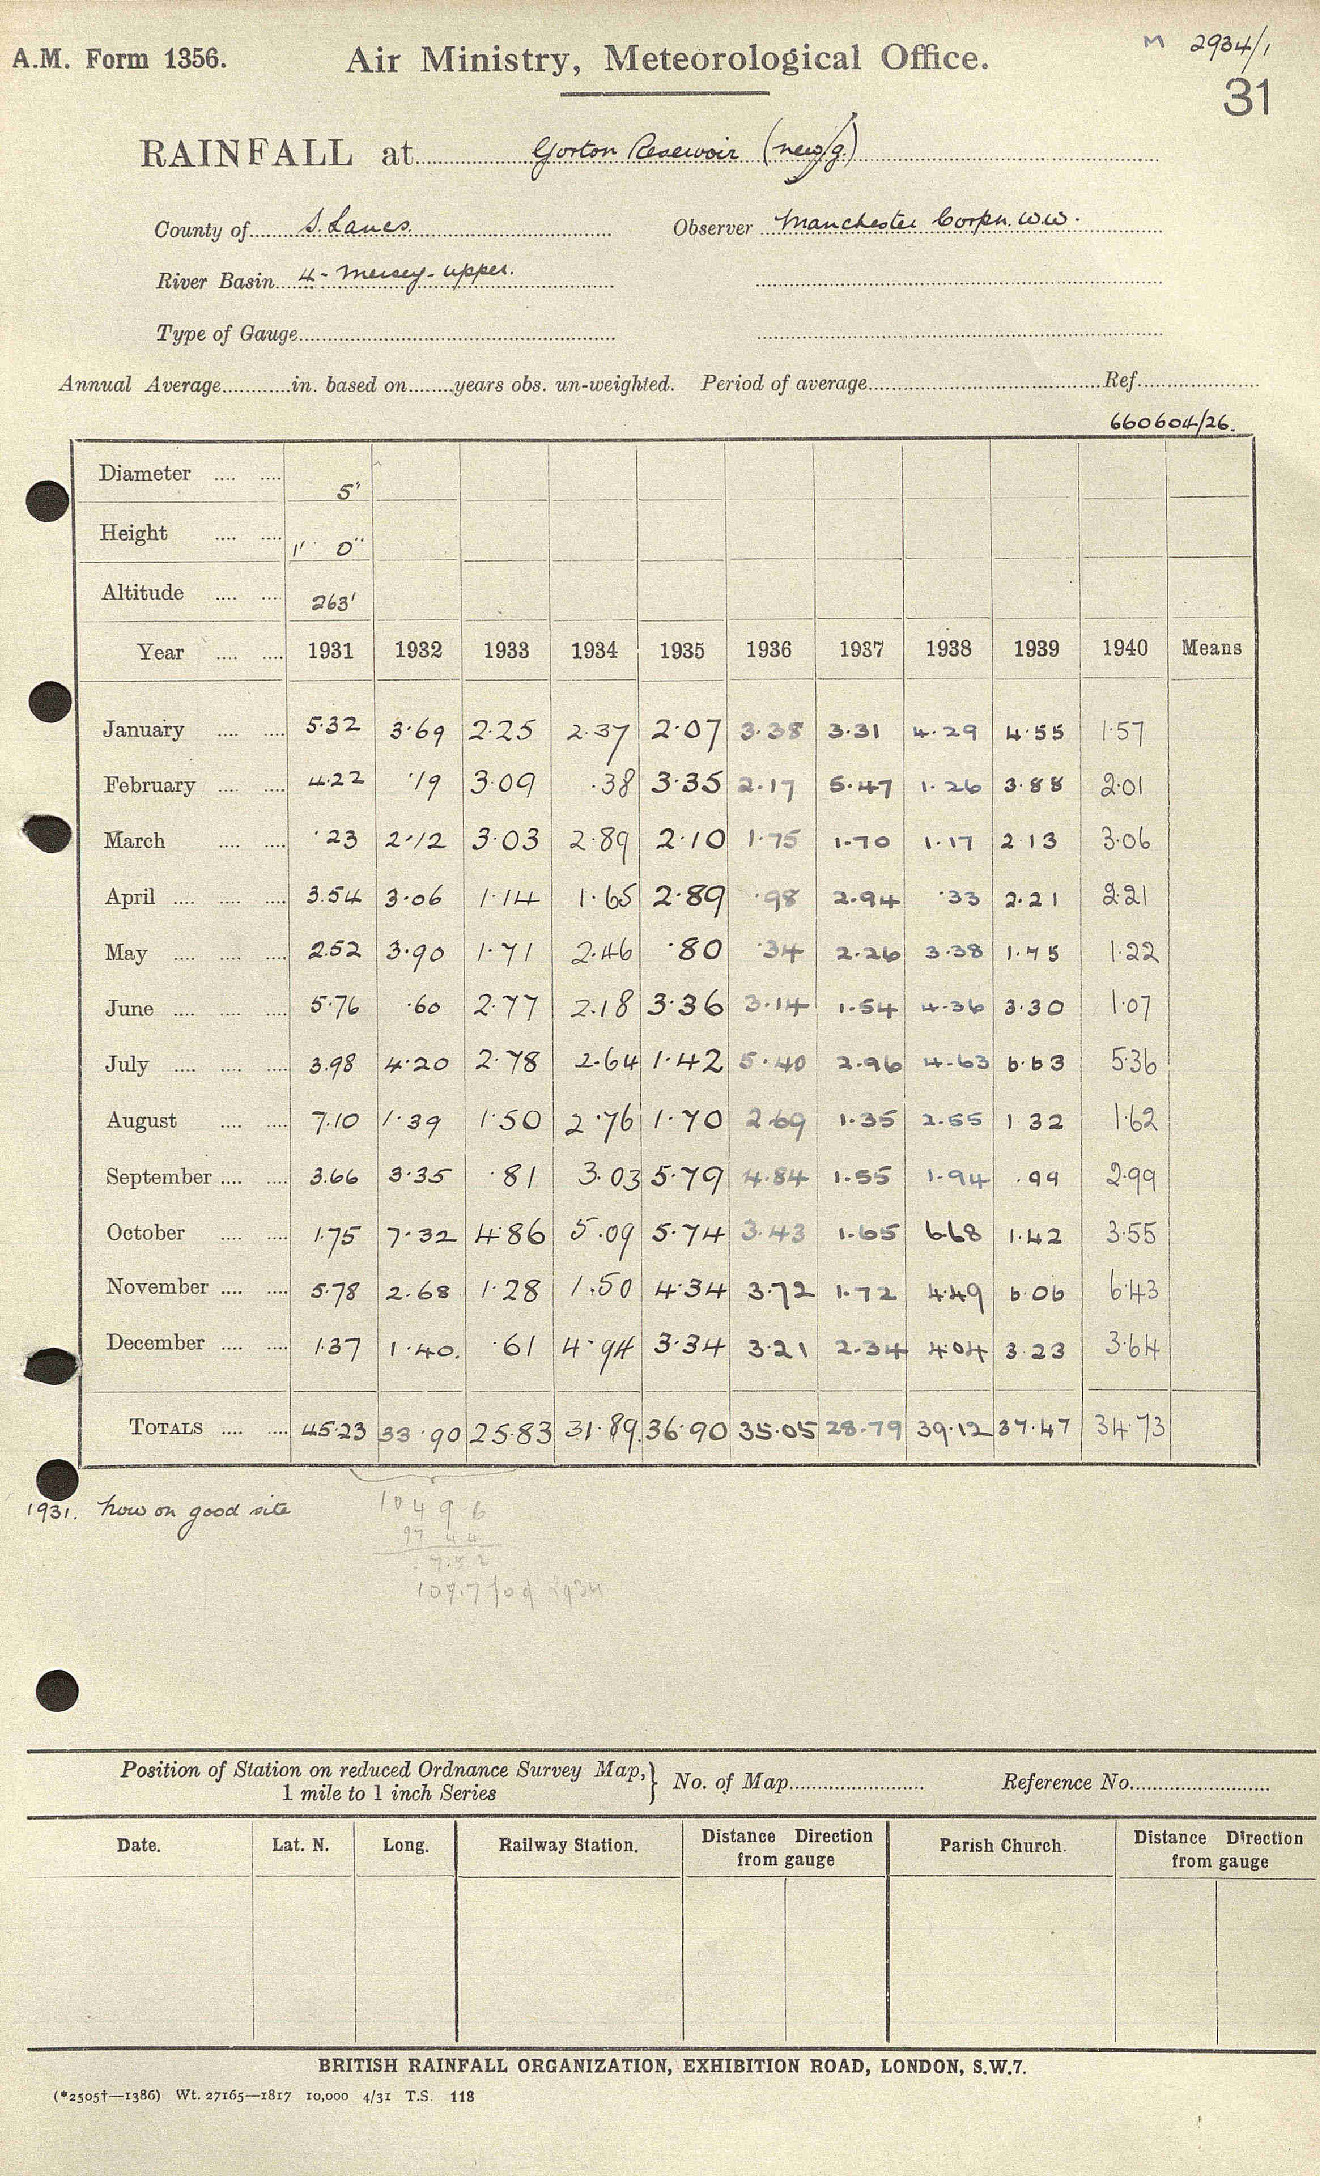 M 2934/1
A.M. Form 1356. Air Ministry, Meteorological Office.
31
RAINFALL at Gorton Reservoir (new g.)
County of S. Lancs. Observer Manchester Corpn. W.W.
River Basin 4 - Mersey - upper.
Type of Gauge
Annual Average in. based on years obs. un-weighted. Period of average Ref.
660604/26.
Diameter 5"
Height 1' 0"
Altitude 263'
Year 1931 1932 1933 1934 1935 1936 1937 1938 1939 1940 Means
January 5.32 3.69 2.25 2.37 2.07 3.38 3.31 4.29 4.55 1.57
February 4.22 .19 3.09 .38 3.35 2.17 5.47 1.26 3.88 2.01
March .23 2.12 3.03 2.89 2.10 1.75 1.70 1.17 2.13 3.06
April 3.54 3.06 1.14 1.65 2.89 .98 2.94 .33 2.21 2.21
May 2.52 3.90 1.71 2.46 .80 .34 2.26 3.38 1.75 1.22
June 5.76 .60 2.77 2.18 3.36 3.14 1.54 4.36 3.30 1.07
July 3.98 4.20 2.78 2.64 1.42 5.40 2.96 4.63 6.63 5.36
August 7.10 1.39 1.50 2.76 1.70 2.69 1.35 2.55 1.32 1.62
September 3.66 3.35 .81 3.03 5.79 4.84 1.55 1.94 .99 2.99
October 1.75 7.32 4.86 5.09 5.74 3.43 1.65 6.68 1.42 3.55
November 5.78 2.68 1.28 1.50 4.34 3.72 1.72 4.49 6.06 6.43
December 1.37 1.40. .61 4.94 3.34 3.21 2.34 4.04 3.23 3.64
TOTALS 45.23 33.90 25.83 31.89 36.90 35.05 28.79 39.12 37.47 34.73
1931. Now on good site
10496
97 44
7.52
107.7
Position of Station on reduced Ordnance Survey Map, } No. of Map Reference No.
1 mile to 1 inch Series
Date. Lat. N. Long. Railway Station. Distance Direction from gauge Parish Church. Distance Direction from gauge
BRITISH RAINFALL ORGANIZATION, EXHIBITION ROAD, LONDON, S.W.7.
(*2505†—1386) Wt. 27165—1817 10,000 4/31 T.S. 118